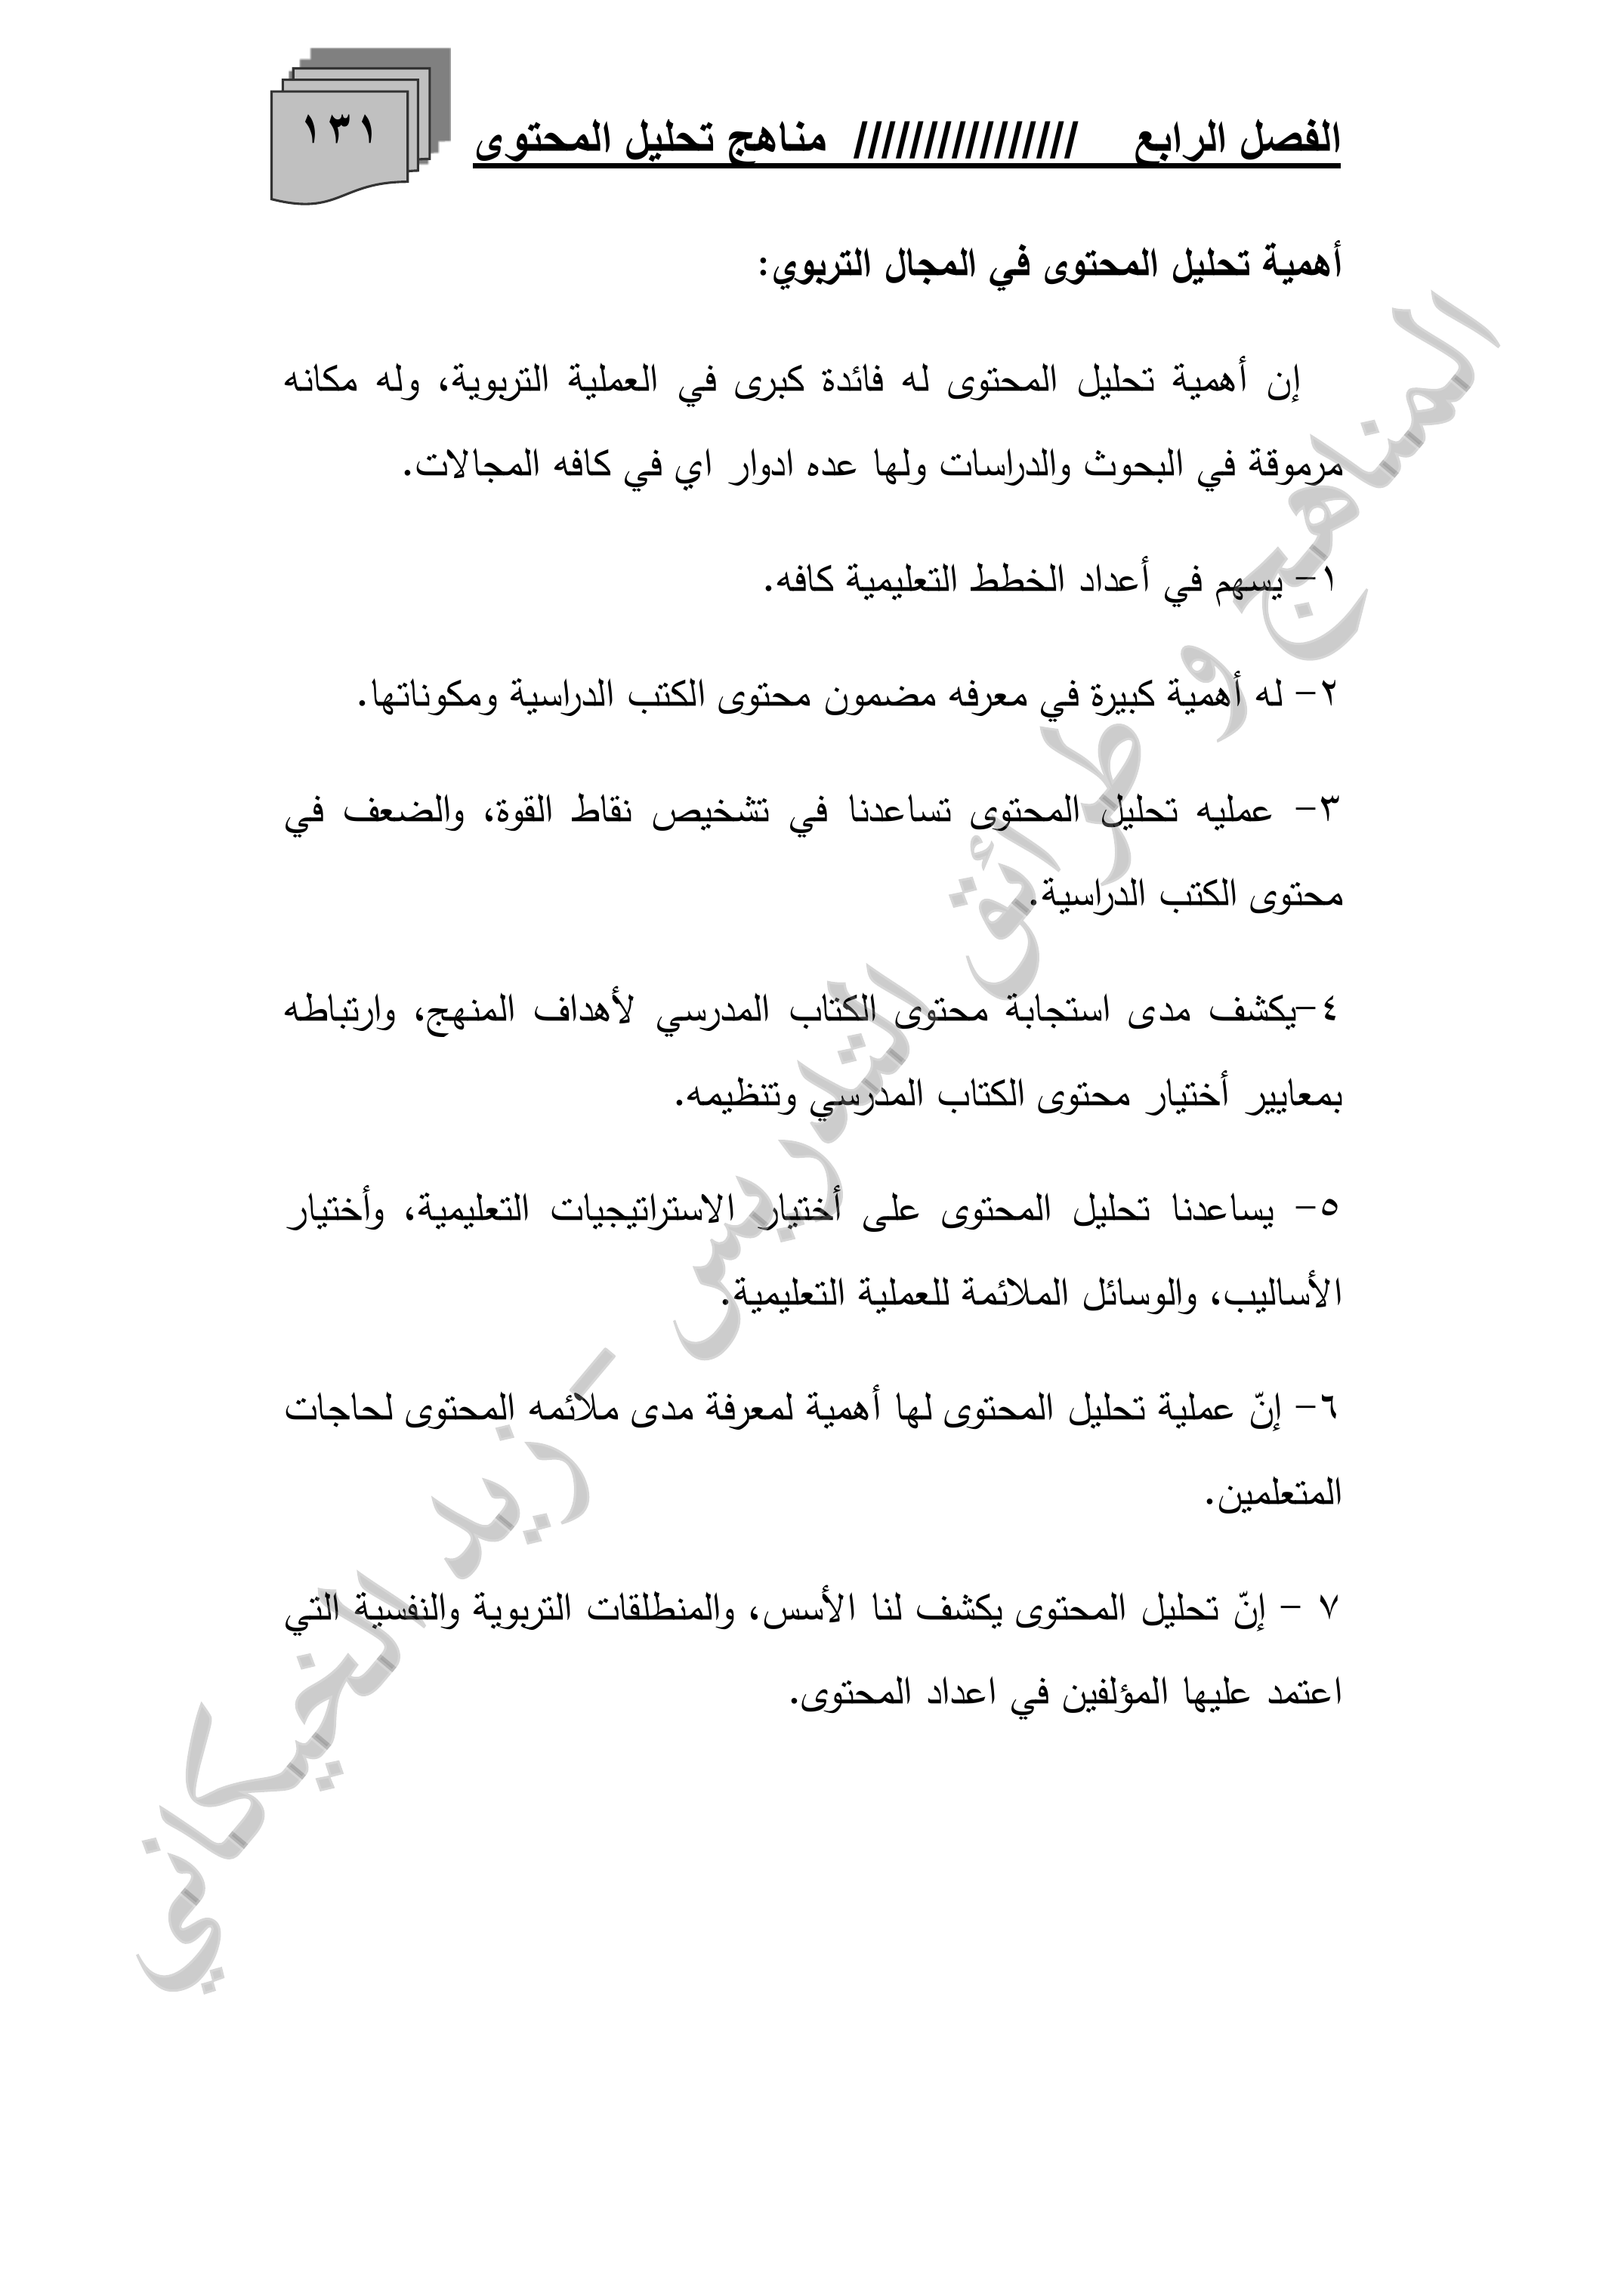 الفصل الرابع //////////////// مناهج تحليل المحتوى
١٣١
أهمية تحليل المحتوى في المجال التربوي:
إن أهمية تحليل المحتوى له فائدة كبرى في العملية التربوية، وله مكانه
مرموقة في البحوث والدراسات ولها عده ادوار اي في كافه المجالات.
١- يسهم في أعداد الخطط التعليمية كافه.
٢- له أهمية كبيرة في معرفه مضمون محتوى الكتب الدراسية ومكوناتها.
٣- عمليه تحليل المحتوى تساعدنا في تشخيص نقاط القوة، والضعف في
محتوى الكتب الدراسية.
٤-يكشف مدى استجابة محتوى الكتاب المدرسي لأهداف المنهج، وارتباطه
بمعايير أختيار محتوى الكتاب المدرسي وتنظيمه.
٥- يساعدنا تحليل المحتوى على أختيار الاستراتيجيات التعليمية، وأختيار
الأساليب، والوسائل الملائمة للعملية التعليمية.
٦- إنّ عملية تحليل المحتوى لها أهمية لمعرفة مدى ملائمه المحتوى لحاجات
المتعلمين.
٧ - إنّ تحليل المحتوى يكشف لنا الأسس، والمنطلقات التربوية والنفسية التي
اعتمد عليها المؤلفين في اعداد المحتوى.
المناهج و طرائق التدريس - زيد الخيكاني